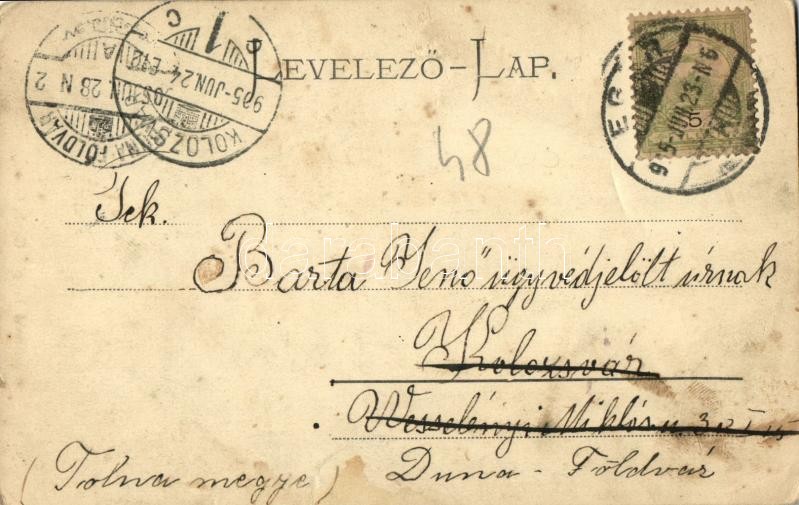 LEVELEZŐ-LAP.
KOLOZSVÁR
905 JUN. 24
1
C
FÖLDVÁR
28 N 2
905 JUN. 23 N 6
5
48
Tek.
Barta Jenő ügyvédjelölt úrnak
Kolozsvár
Wesselényi Miklós u. 30 I
Duna-Földvár
(Tolna megye)
Darabanth